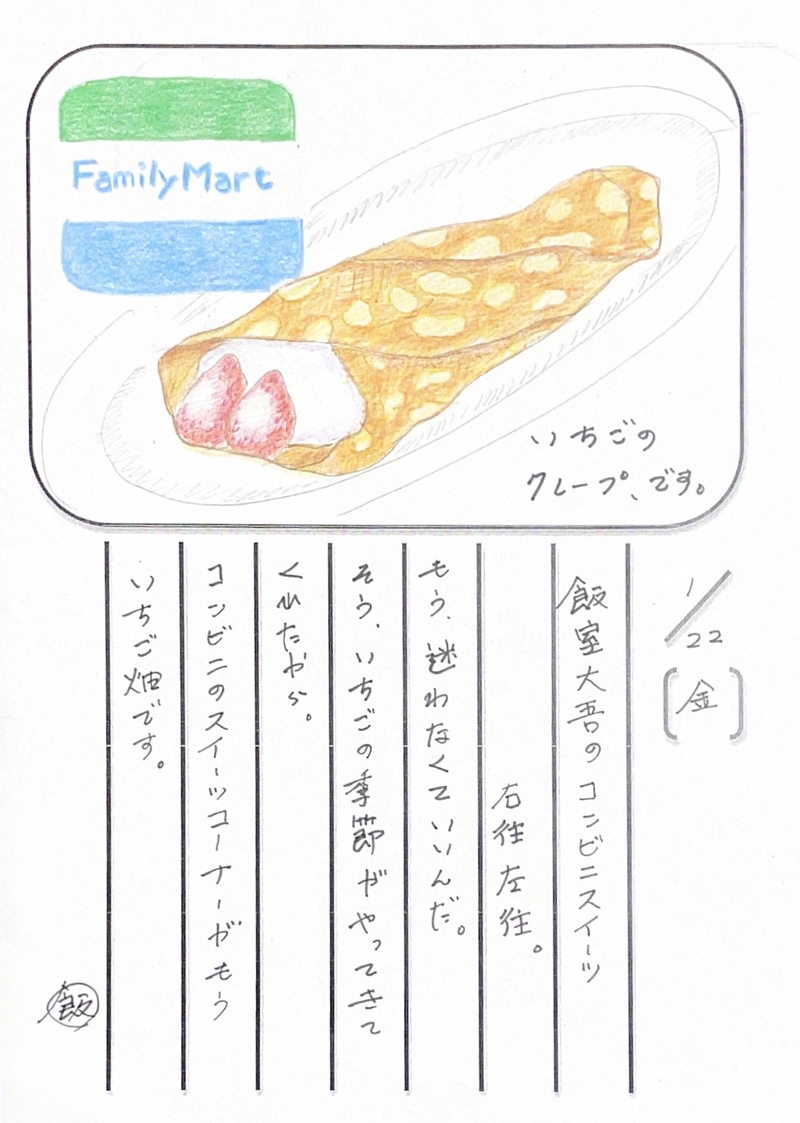 FamilyMart
いちごの
クレープ、です。
1/22
[金]
飯室大吾のコンビニスイーツ
右往左往。
もう、迷わなくていいんだ。
そう、いちごの季節がやってきて
くれたから。
コンビニのスイーツコーナーがもう
いちご畑です。
飯